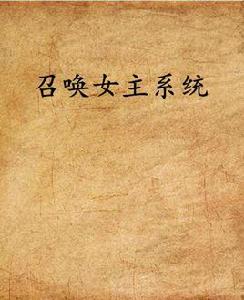 召唤女主系统